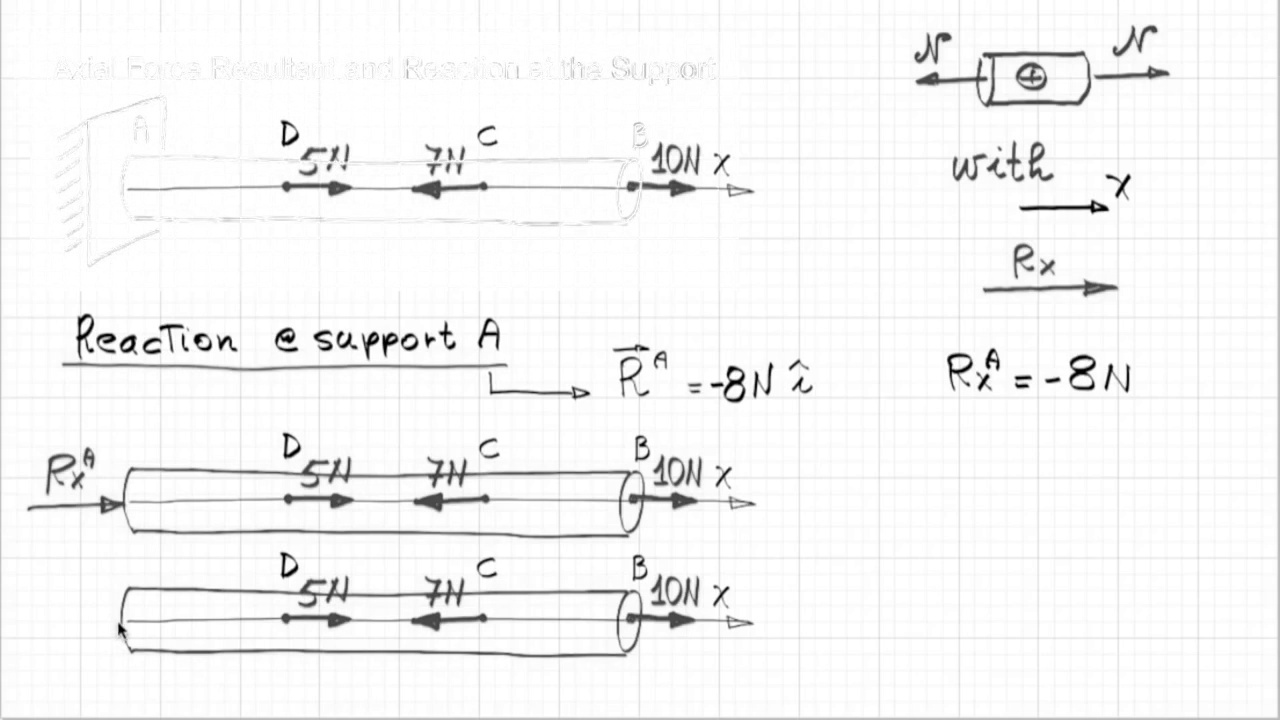 axial Force Resultant and Reaction at the Support
N N
⊕
A D C B
5N 7N 10N x
with
x
Rx
Reaction @ support A
R⃗ᴬ = -8N î
Rxᴬ = -8N
D C B
Rxᴬ 5N 7N 10N x
D C B
5N 7N 10N x